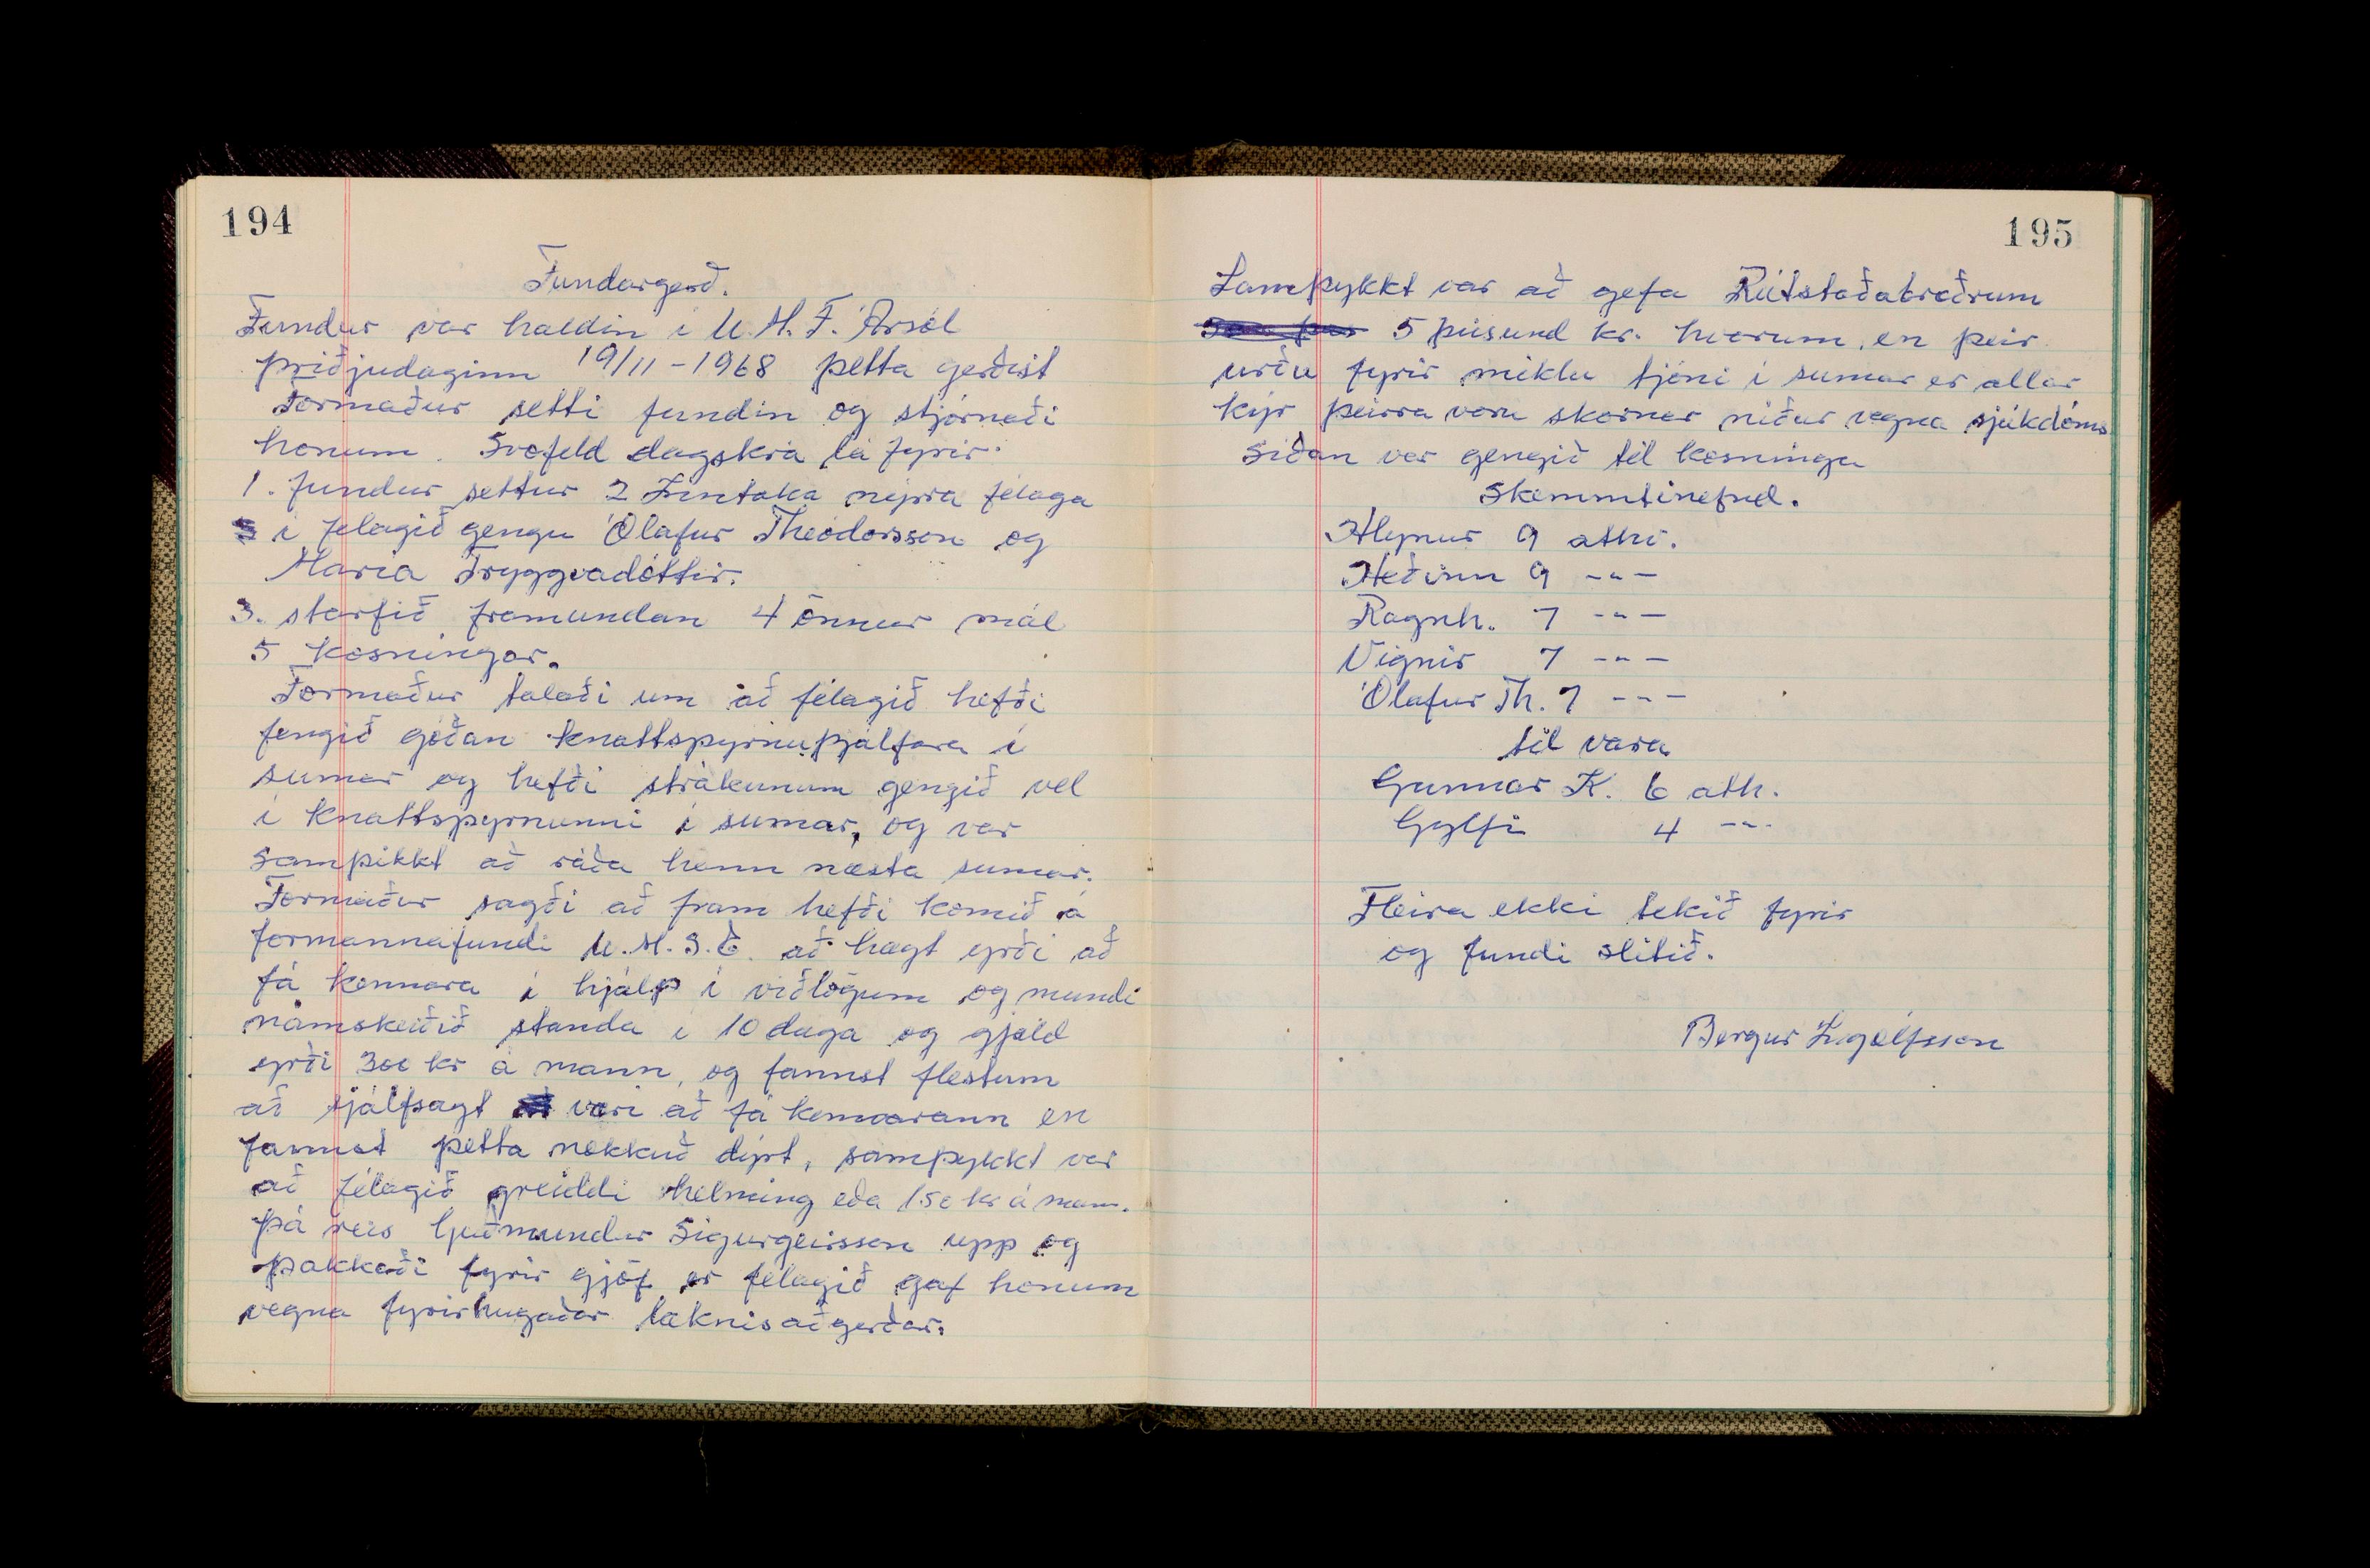 194
Fundargerð.
Fundur var haldin í U.M.F. Ársól
þriðjudaginn 19/11-1968 þetta gerðist
Formaður setti fundin og stjórnaði
honum. Svofeld dagskrá lá fyrir.
1. fundur settur 2 Inntaka nýrra félaga
í félagið gengu Ólafur Theódorsson og
María Tryggvadóttir.
3. starfið framundan 4 önnur mál
5 kosningar.
Formaður talaði um að félagið hefði
fengið góðan knattspyrnuþjálfara í
sumar og hefði strákunum gengið vel
í knattspyrnunni í sumar, og var
samþikkt að ráða hann næsta sumar.
Formaður sagði að fram hefði komið á
formannafundi U.M.S.E. að hægt yrði að
fá kennara í hjálp í viðlögum og mundi
námskeiðið standa í 10 daga og gjald
yrði 300 kr á mann, og fannst flestum
að sjálfsagt væri að fá kennarann en
fannst þetta nokkuð dýrt, samþykkt var
að félagið greiddi helming eða 150 kr á mann.
Þá reis Guðmundur Sigurgeirsson upp og
þakkaði fyrir gjöf er félagið gaf honum
vegna fyrirhugaðar læknisaðgerðar.
195
Samþykkt var að gefa Rútstaðabræðrum
5 þúsund kr. hvorum, en þeir
urðu fyrir miklu tjóni í sumar er allar
kýr þeirra voru skornar niður vegna sjúkdóms
Síðan var gengið til kosninga
Skemmtinefnd.
Hlynur 9 atkv.
Héðinn 9 -"-
Ragnh. 7 -"-
Vignir 7 -"-
Ólafur Th. 7 -"-
til vara
Gunnar K. 6 atk.
Gylfi 4 -"-
Fleira ekki tekið fyrir
og fundi slitið.
Bergur Ingólfsson